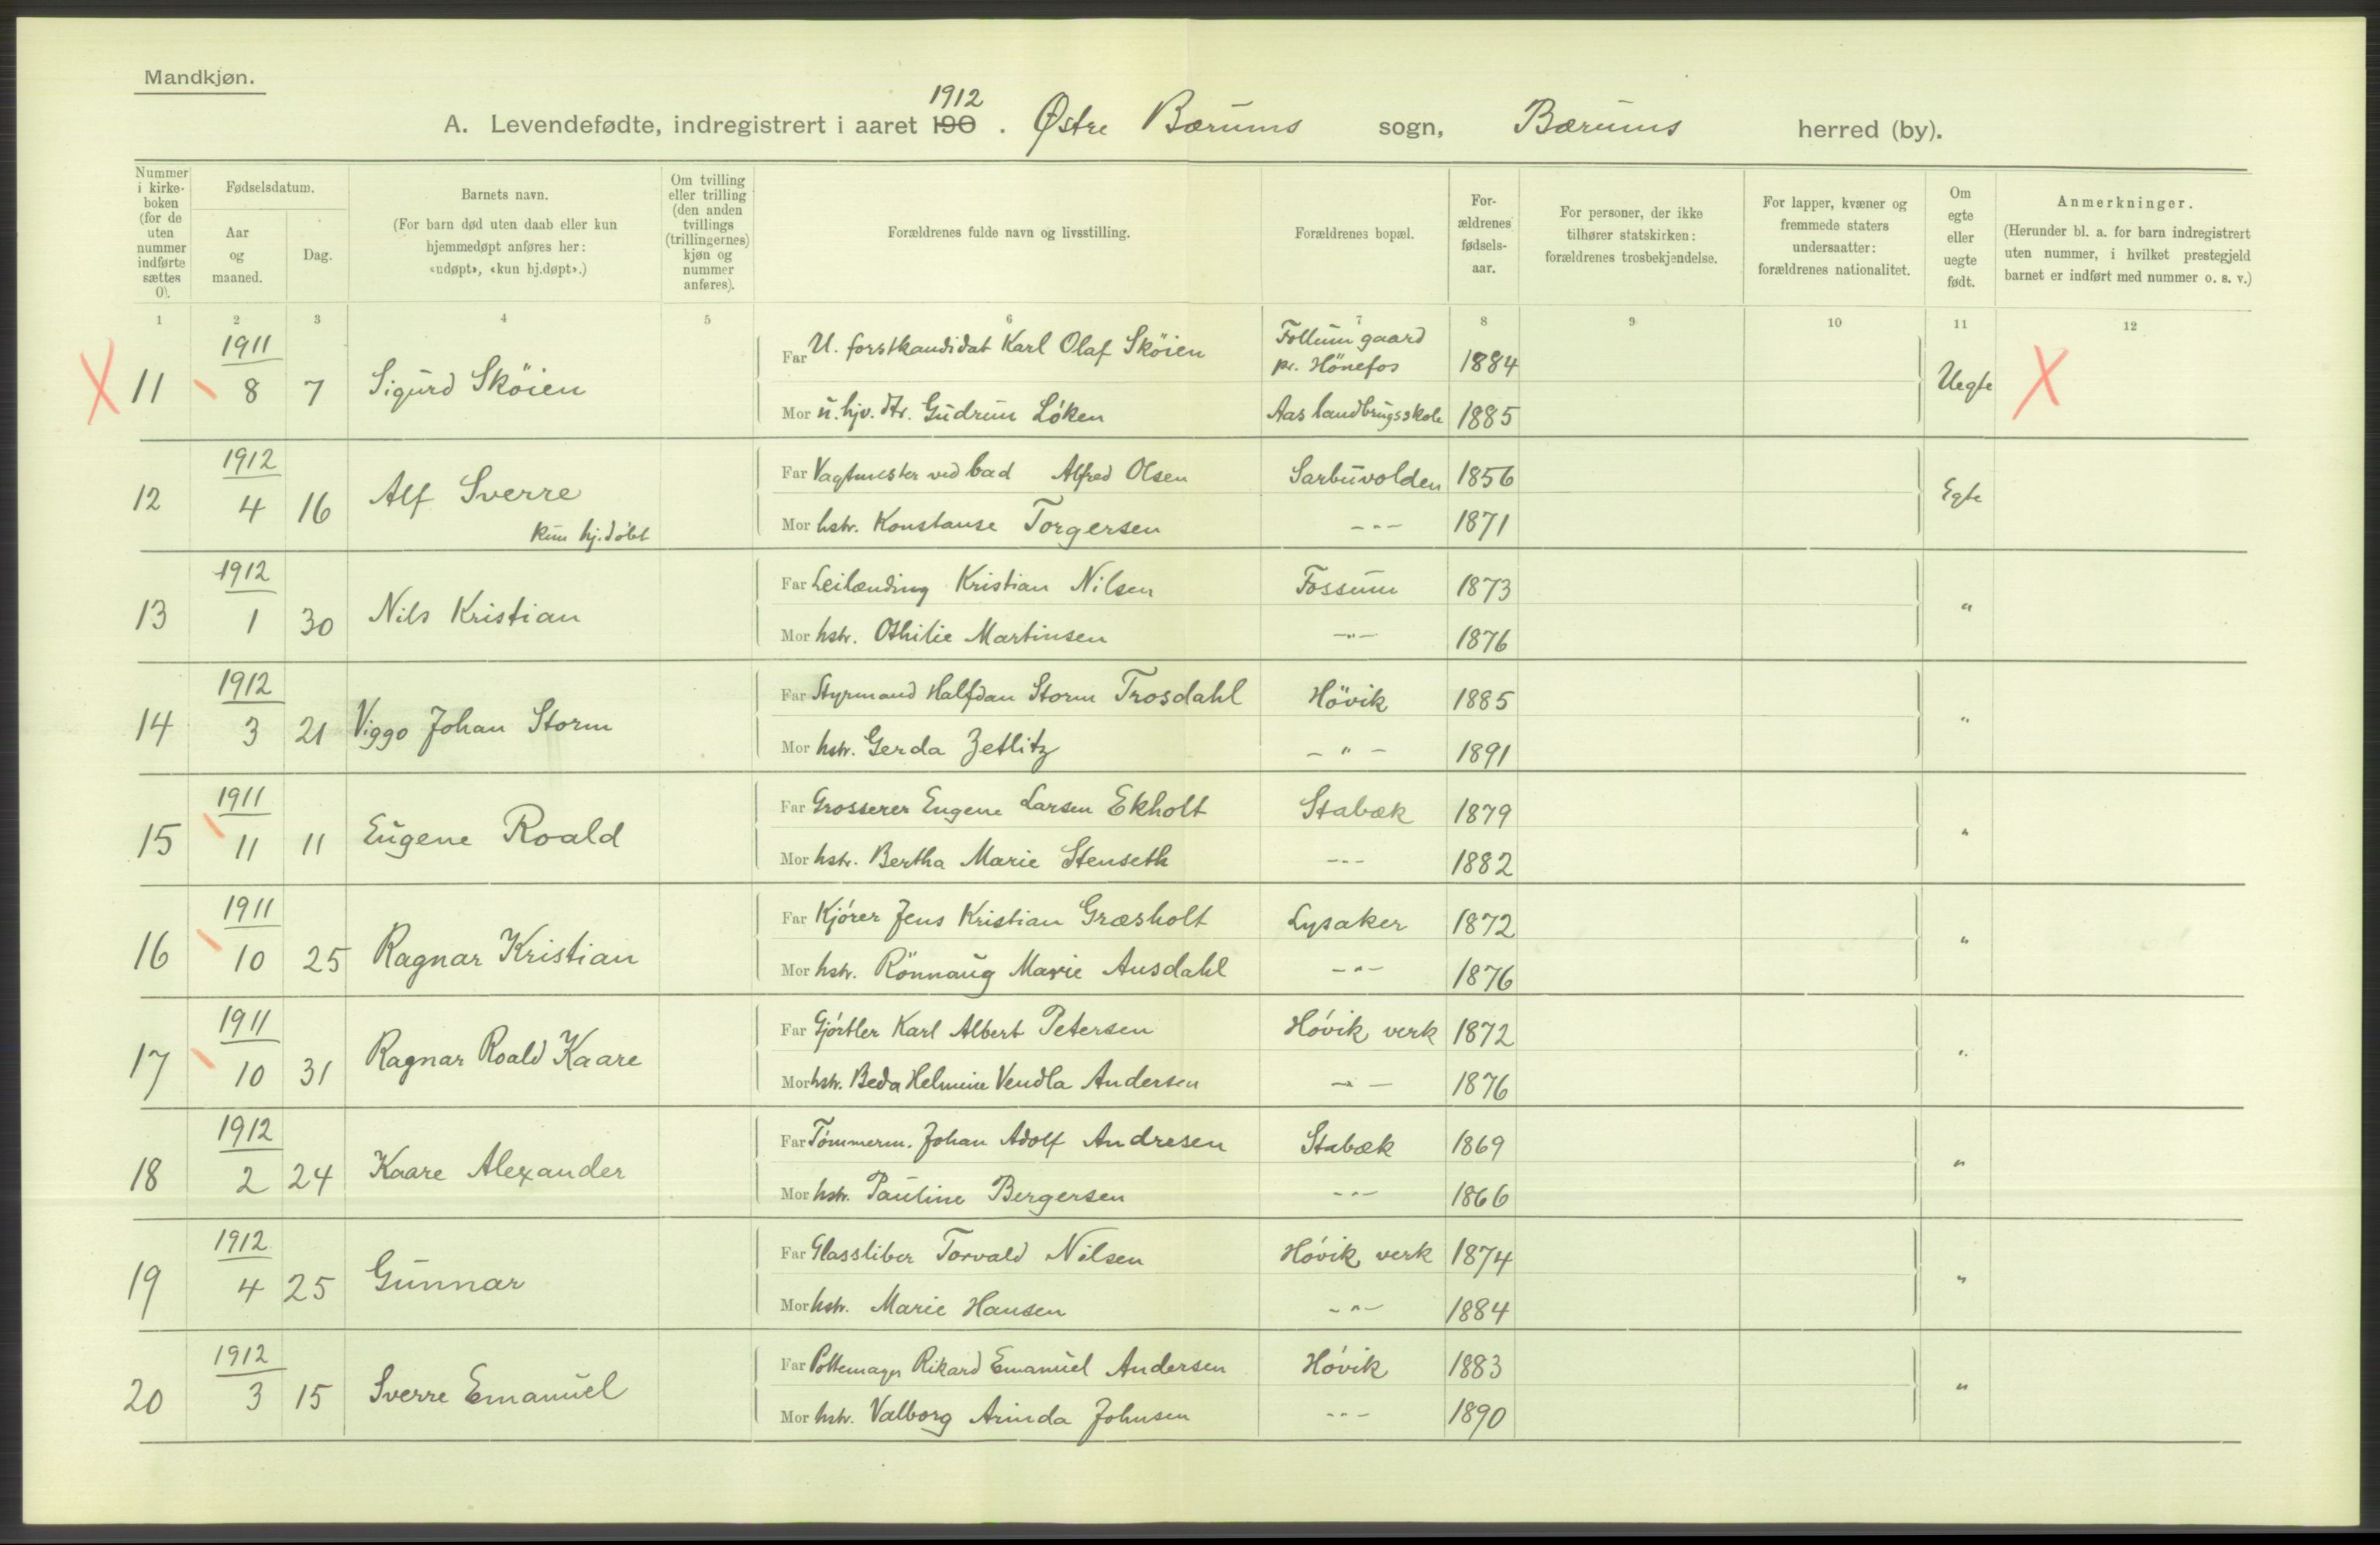 Mandkjøn.
1912
A. Levendefødte, indregistrert i aaret 190 . Østre Bærums sogn, Bærums herred (by).
Nummer i kirke-boken (for de uten nummer indførte sættes 0).
Fødselsdatum.
Aar og maaned.
Dag.
Barnets navn.
(For barn død uten daab eller kun hjemmedøpt anføres her: «udøpt», «kun hj.døpt».)
Om tvilling eller trilling (den anden tvillings (trillingernes) kjøn og nummer anføres).
Forældrenes fulde navn og livsstilling.
Forældrenes bopæl.
For-ældrenes fødsels-aar.
For personer, der ikke tilhører statskirken: forældrenes trosbekjendelse.
For lapper, kvæner og fremmede staters undersaatter: forældrenes nationalitet.
Om egte eller uegte født.
Anmerkninger.
(Herunder bl. a. for barn indregistrert uten nummer, i hvilket prestegjeld barnet er indført med nummer o. s. v.)
1 2 3 4 5 6 7 8 9 10 11 12
X 11 1911 8 7 Sigurd Sköien
Far U. forstkandidat Karl Olaf Sköien Follum gaard pr. Hönefos 1884
Mor u. hjv. dtr. Gudrun Löken Aas landbrugsskole 1885
Uegte X
12 1912 4 16 Alf Sverre
kun hj.döbt
Far Vagtmester ved bad Alfred Olsen Sarbuvolden 1856
Mor hstr. Konstanse Torgersen -"- 1871
Egte
13 1912 1 30 Nils Kristian
Far Leilænding Kristian Nilsen Fossum 1873
Mor hstr. Othilie Martinsen -"- 1876
"
14 1912 3 21 Viggo Johan Storm
Far Styrmand Halfdan Storm Trosdahl Hövik 1885
Mor hstr. Gerda Zetlitz -"- 1891
"
15 1911 11 11 Eugene Roald
Far Grosserer Eugene Larsen Ekholt Stabæk 1879
Mor hstr. Bertha Marie Stenseth -"- 1882
"
16 1911 10 25 Ragnar Kristian
Far Kjörer Jens Kristian Græsholt Lysaker 1872
Mor hstr. Rönnaug Marie Ausdahl -"- 1876
"
17 1911 10 31 Ragnar Roald Kaare
Far Gjörtler Karl Albert Petersen Hövik verk 1872
Mor hstr. Beda Helmine Vendla Andersen -"- 1876
"
18 1912 2 24 Kaare Alexander
Far Tömmerm. Johan Adolf Andresen Stabæk 1869
Mor hstr. Pauline Bergersen -"- 1866
"
19 1912 4 25 Gunnar
Far Glassliber Torvald Nilsen Hövik verk 1874
Mor hstr. Marie Hansen -"- 1884
"
20 1912 3 15 Sverre Emanuel
Far Pottemager Rikard Emanuel Andersen Hövik 1883
Mor hstr. Valborg Arinda Johnsen -"- 1890
"